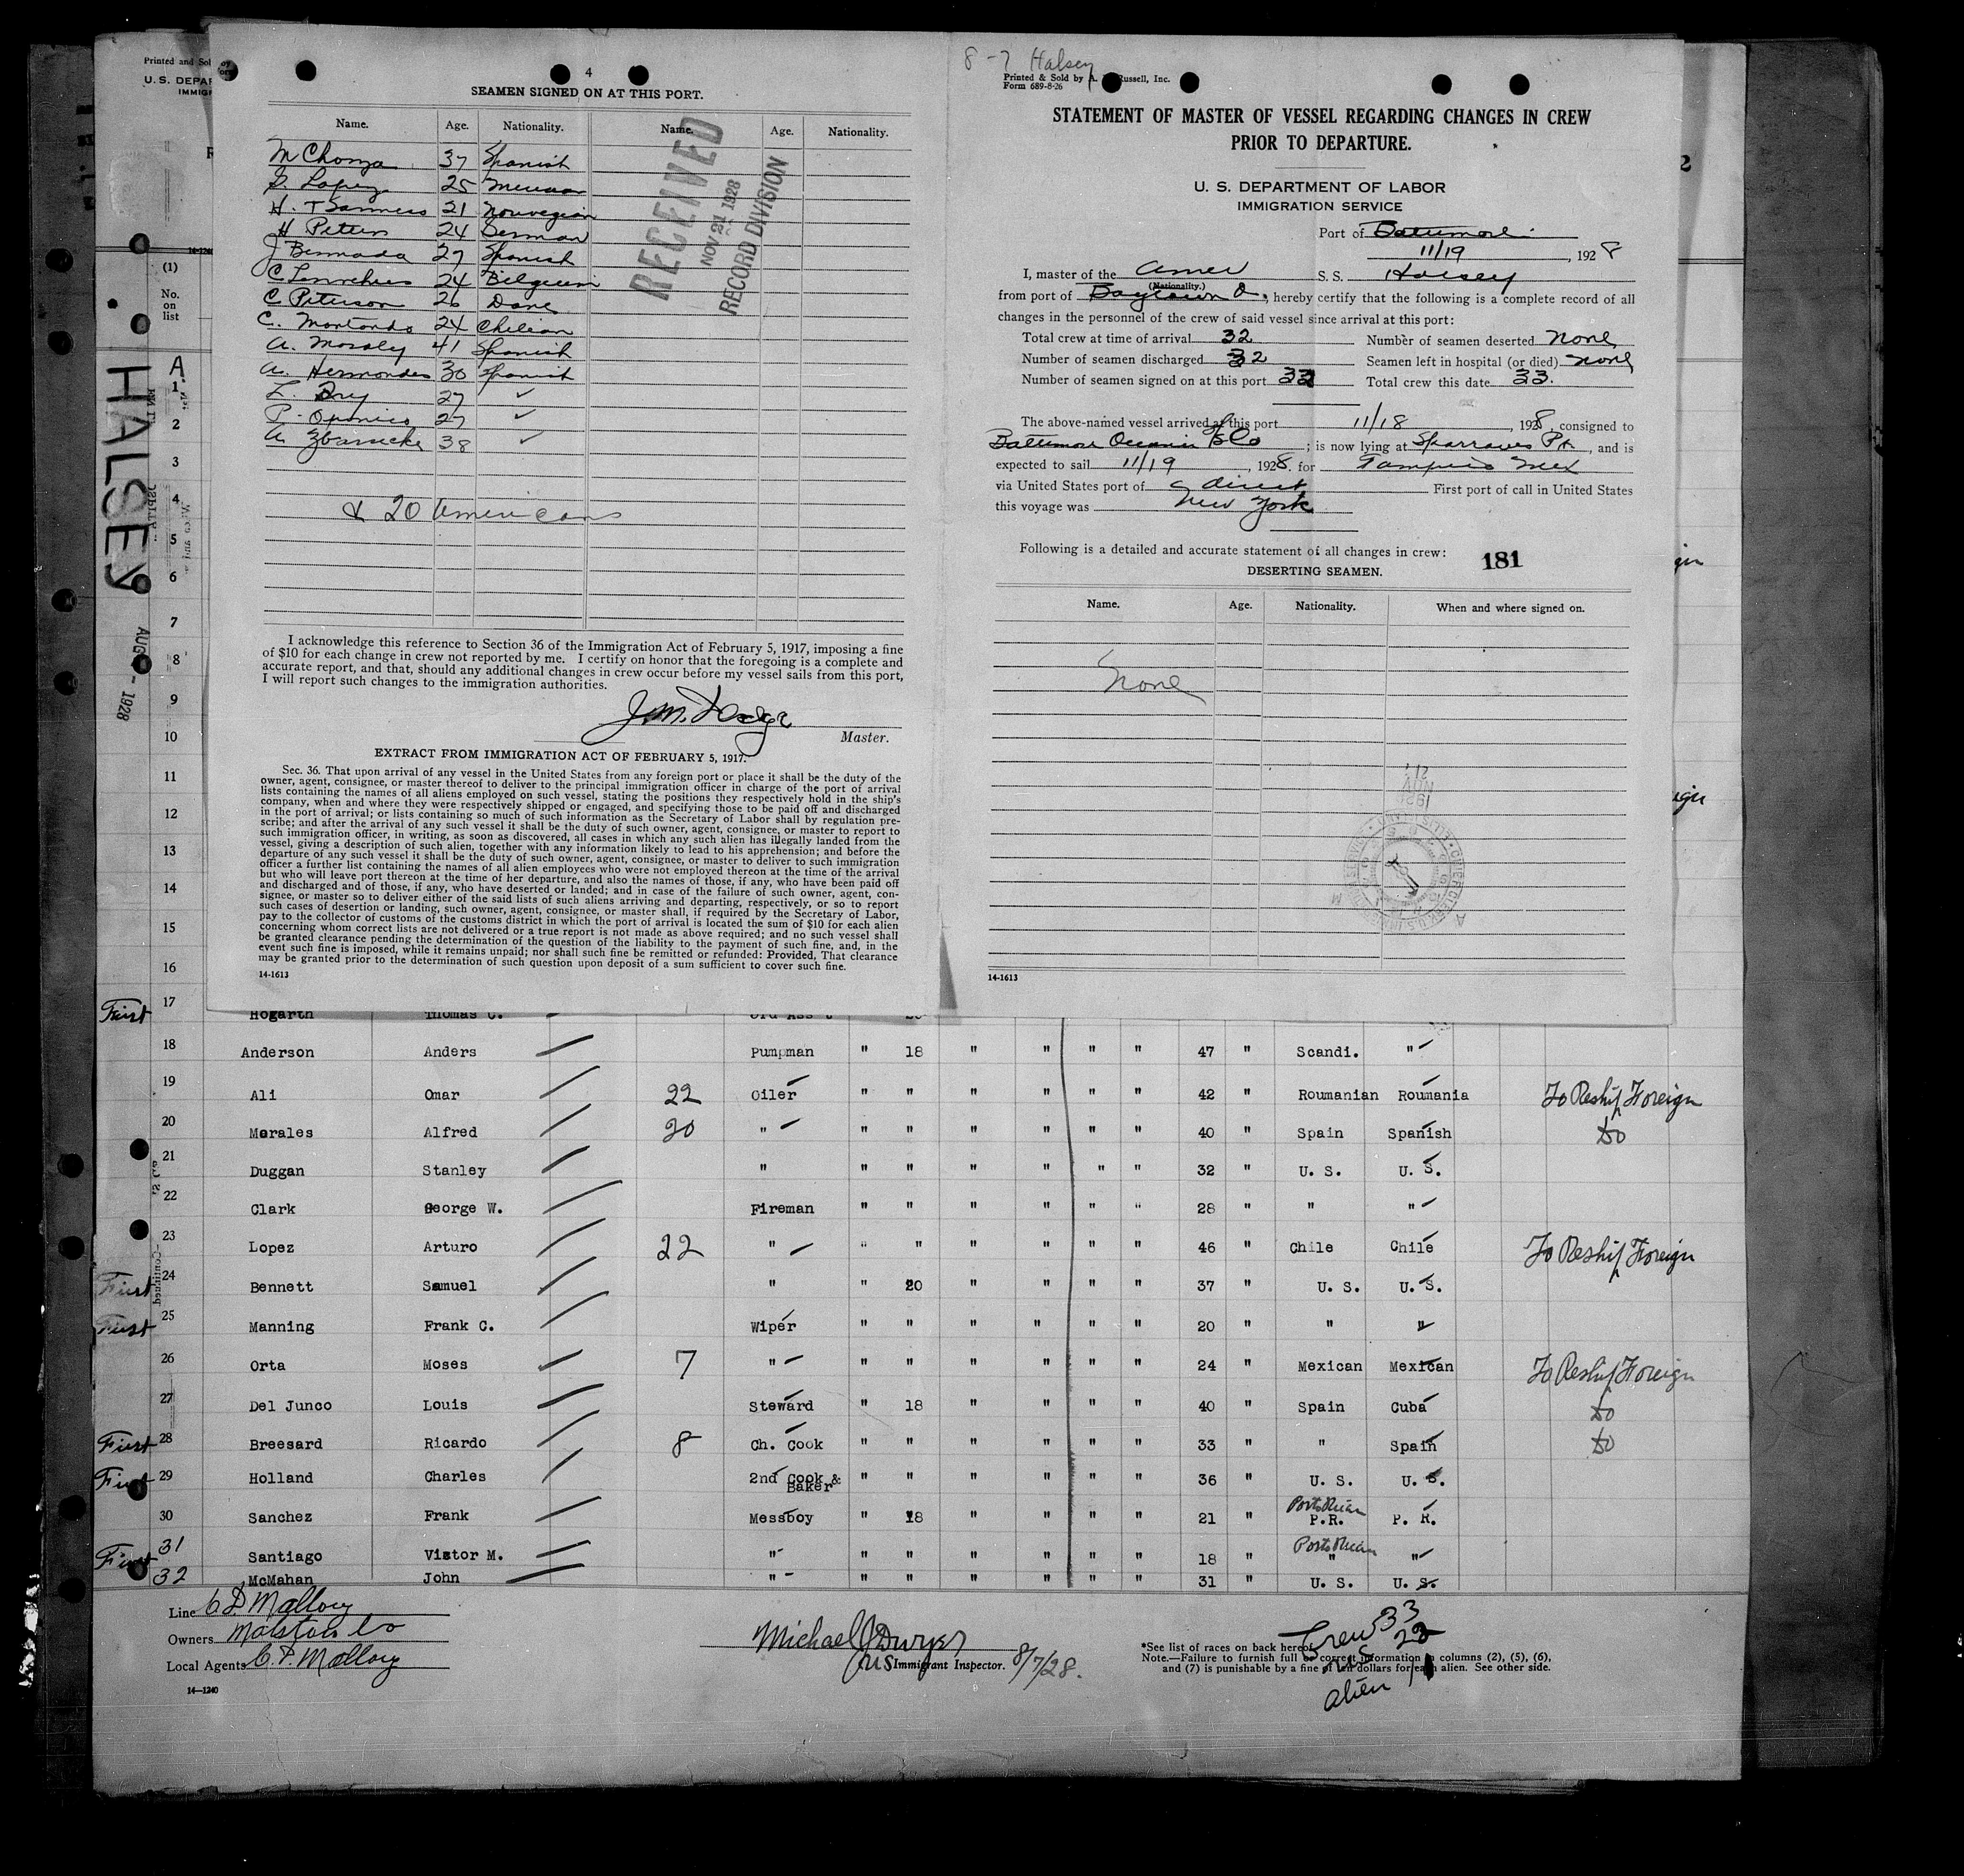 4
SEAMEN SIGNED ON AT THIS PORT.
Name. Age. Nationality. Name. Age. Nationality.
M Chonza 37 Spanish
Lopez 25
H. 21 Norwegian
H Peters 24 German
J Bermada 27 Spanish
C 24 Belgium
C Peterson 26 Dane
C. Montando 24 Chilean
A. Moraly 41 Spanish
A. Hermondes 30 Spanish
L. Dry 27 ✓
P. 27
A 38 ✓
& 20 Americans
RECEIVED
NOV 21 1928
RECORD DIVISION
I acknowledge this reference to Section 36 of the Immigration Act of February 5, 1917, imposing a fine
of $10 for each change in crew not reported by me. I certify on honor that the foregoing is a complete and
accurate report, and that, should any additional changes in crew occur before my vessel sails from this port,
I will report such changes to the immigration authorities.
Master.
EXTRACT FROM IMMIGRATION ACT OF FEBRUARY 5, 1917.
Sec. 36. That upon arrival of any vessel in the United States from any foreign port or place it shall be the duty of the
owner, agent, consignee, or master thereof to deliver to the principal immigration officer in charge of the port of arrival
lists containing the names of all aliens employed on such vessel, stating the positions they respectively hold in the ship's
company, when and where they were respectively shipped or engaged, and specifying those to be paid off and discharged
in the port of arrival; or lists containing so much of such information as the Secretary of Labor shall by regulation pre-
scribe; and after the arrival of any such vessel it shall be the duty of such owner, agent, consignee, or master to report to
such immigration officer, in writing, as soon as discovered, all cases in which any such alien has illegally landed from the
vessel, giving a description of such alien, together with any information likely to lead to his apprehension; and before the
departure of any such vessel it shall be the duty of such owner, agent, consignee, or master to deliver to such immigration
officer a further list containing the names of all alien employees who were not employed thereon at the time of the arrival
but who will leave port thereon at the time of her departure, and also the names of those, if any, who have been paid off
and discharged and of those, if any, who have deserted or landed; and in case of the failure of such owner, agent, con-
signee, or master so to deliver either of the said lists of such aliens arriving and departing, respectively, or so to report
such cases of desertion or landing, such owner, agent, consignee, or master shall, if required by the Secretary of Labor,
pay to the collector of customs of the customs district in which the port of arrival is located the sum of $10 for each alien
concerning whom correct lists are not delivered or a true report is not made as above required; and no such vessel shall
be granted clearance pending the determination of the question of the liability to the payment of such fine, and, in the
event such fine is imposed, while it remains unpaid; nor shall such fine be remitted or refunded: Provided, That clearance
may be granted prior to the determination of such question upon deposit of a sum sufficient to cover such fine.
14-1613
8-7 Halsey
Printed & Sold by A. Russell, Inc.
Form 689-8-26
STATEMENT OF MASTER OF VESSEL REGARDING CHANGES IN CREW
PRIOR TO DEPARTURE.
U. S. DEPARTMENT OF LABOR
IMMIGRATION SERVICE
Port of Baltimore
11/19, 1928
I, master of the Amer S. S. Halsey
(Nationality.)
from port of Baytown, hereby certify that the following is a complete record of all
changes in the personnel of the crew of said vessel since arrival at this port:
Total crew at time of arrival 32 Number of seamen deserted none
Number of seamen discharged 32 Seamen left in hospital (or died) none
Number of seamen signed on at this port 33 Total crew this date 33.
The above-named vessel arrived at this port 11/18, 1928, consigned to
Baltimore Oceanic SS Co; is now lying at Sparrows Pt, and is
expected to sail 11/19, 1928. for Tampico Mex
via United States port of direct First port of call in United States
this voyage was New York
Following is a detailed and accurate statement of all changes in crew:
181
DESERTING SEAMEN.
Name. Age. Nationality. When and where signed on.
None
14-1613
Printed and Sol
U. S. DEPAR
IMMIG
14-1240
(1)
No.
on
list
HALSEY
AUG - 1928
A
1
2
3
4
5
6
7
8
9
10
11
12
13
14
15
16
First 17 Hogarth Thomas C.
18 Anderson Anders Pumpman " 18 " " " " 47 " Scandi. "
19 Ali Omar 22 Oiler " " " " " " 42 " Roumanian Roumania To Reship Foreign
20 Morales Alfred 20 " " " " " " " 40 " Spain Spanish do
21 Duggan Stanley " " " " " " " 32 " U. S. U. S.
22 Clark George W. Fireman " " " " " " 28 " " "
23 Lopez Arturo 22 " " " " " " " 46 " Chile Chile To Reship Foreign
First 24 Bennett Samuel " " 20 " " " " 37 " U. S. U. S.
First 25 Manning Frank C. Wiper " " " " " " 20 " " "
26 Orta Moses 7 " " " " " " " 24 " Mexican Mexican To Reship Foreign
27 Del Junco Louis Steward " 18 " " " " 40 " Spain Cuba do
First 28 Breesard Ricardo 8 Ch. Cook " " " " " " 33 " " Spain do
First 29 Holland Charles 2nd Cook & Baker " " " " " " 36 " U. S. U. S.
30 Sanchez Frank Messboy " 18 " " " " 21 " Porto Rican P.R. P. R.
First 31 Santiago Victor M. " " " " " " " 18 " Porto Rican " "
32 McMahan John " " " " " " " 31 " U. S. U. S.
Line C. D. Mallory
Owners Malston Co
Local Agents C. D. Mallory
14-1240
Michael J Dwyer
US Immigrant Inspector. 8/7/28.
*See list of races on back hereof.
Note.—Failure to furnish full or correct information in columns (2), (5), (6),
and (7) is punishable by a fine of ten dollars for each alien. See other side.
Crew 33
US 22
Alien 11